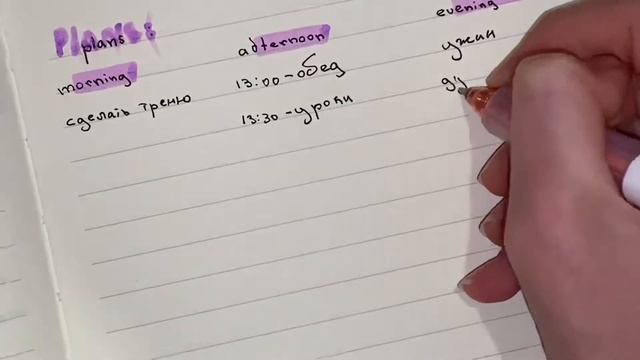 Plans:
plans
morning
сделать треню
adternoon
13:00 - обед
13:30 - уроки
evening
ужин